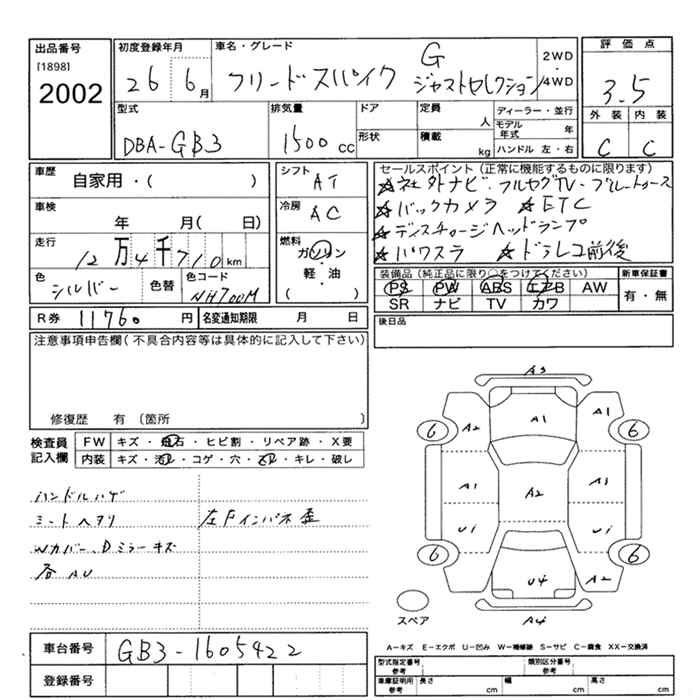 出品番号 初度登録年月 車名・グレード 評価点
[1898] 2002
26 6月 フリードスパイク G ジャストセレクション 2WD /4WD 3.5
型式 排気量 ドア 定員 人 ディーラー・並行 外装 内装
DBA-GB3 1500cc 形状 積載 kg モデル年式 年 ハンドル 左・右 C C
車歴 自家用・( ) シフト AT セールスポイント(正常に機能するものに限ります)
☆社外ナビ・フルセグTV・
車検 年 月( 日) 冷房 AC ☆バックカメラ ☆ETC
☆ディスチャージヘッドランプ
走行 12万4千710km 燃料 ガソリン・軽・油 ( ) ☆パワスラ ☆ドラレコ前後
色 シルバー 色替 色コード NH700M 装備品(純正品に限り○をつけてください) 新車保証書
PS PW ABS エアB AW 有・無
SR ナビ TV カワ
R券 11760円 名変通知期限 月 日 後日品
注意事項申告欄(不具合内容等は具体的に記入して下さい)
修復歴 有〔箇所 〕
検査員記入欄 FW キズ・飛石・ヒビ割・リペア跡・X要
内装 キズ・汚れ・コゲ・穴・ ・キレ・破レ
A3
A2 A1 A1
6 6
A1 A2 A1
U1 U1
6 6
U4 A2
A4
スペア
ハンドルハゲ
シートヘタリ 左Fインパネ歪
Wカバー、Dミラーキズ
各AU
A-キズ E-エクボ U-凹み W-補修跡 S-サビ C-腐食 XX-交換済
車台番号 GB3-1605922
登録番号
型式指定番号 参考 類別区分番号 参考
車庫証明用 参考 長さ cm 幅 cm 高さ cm